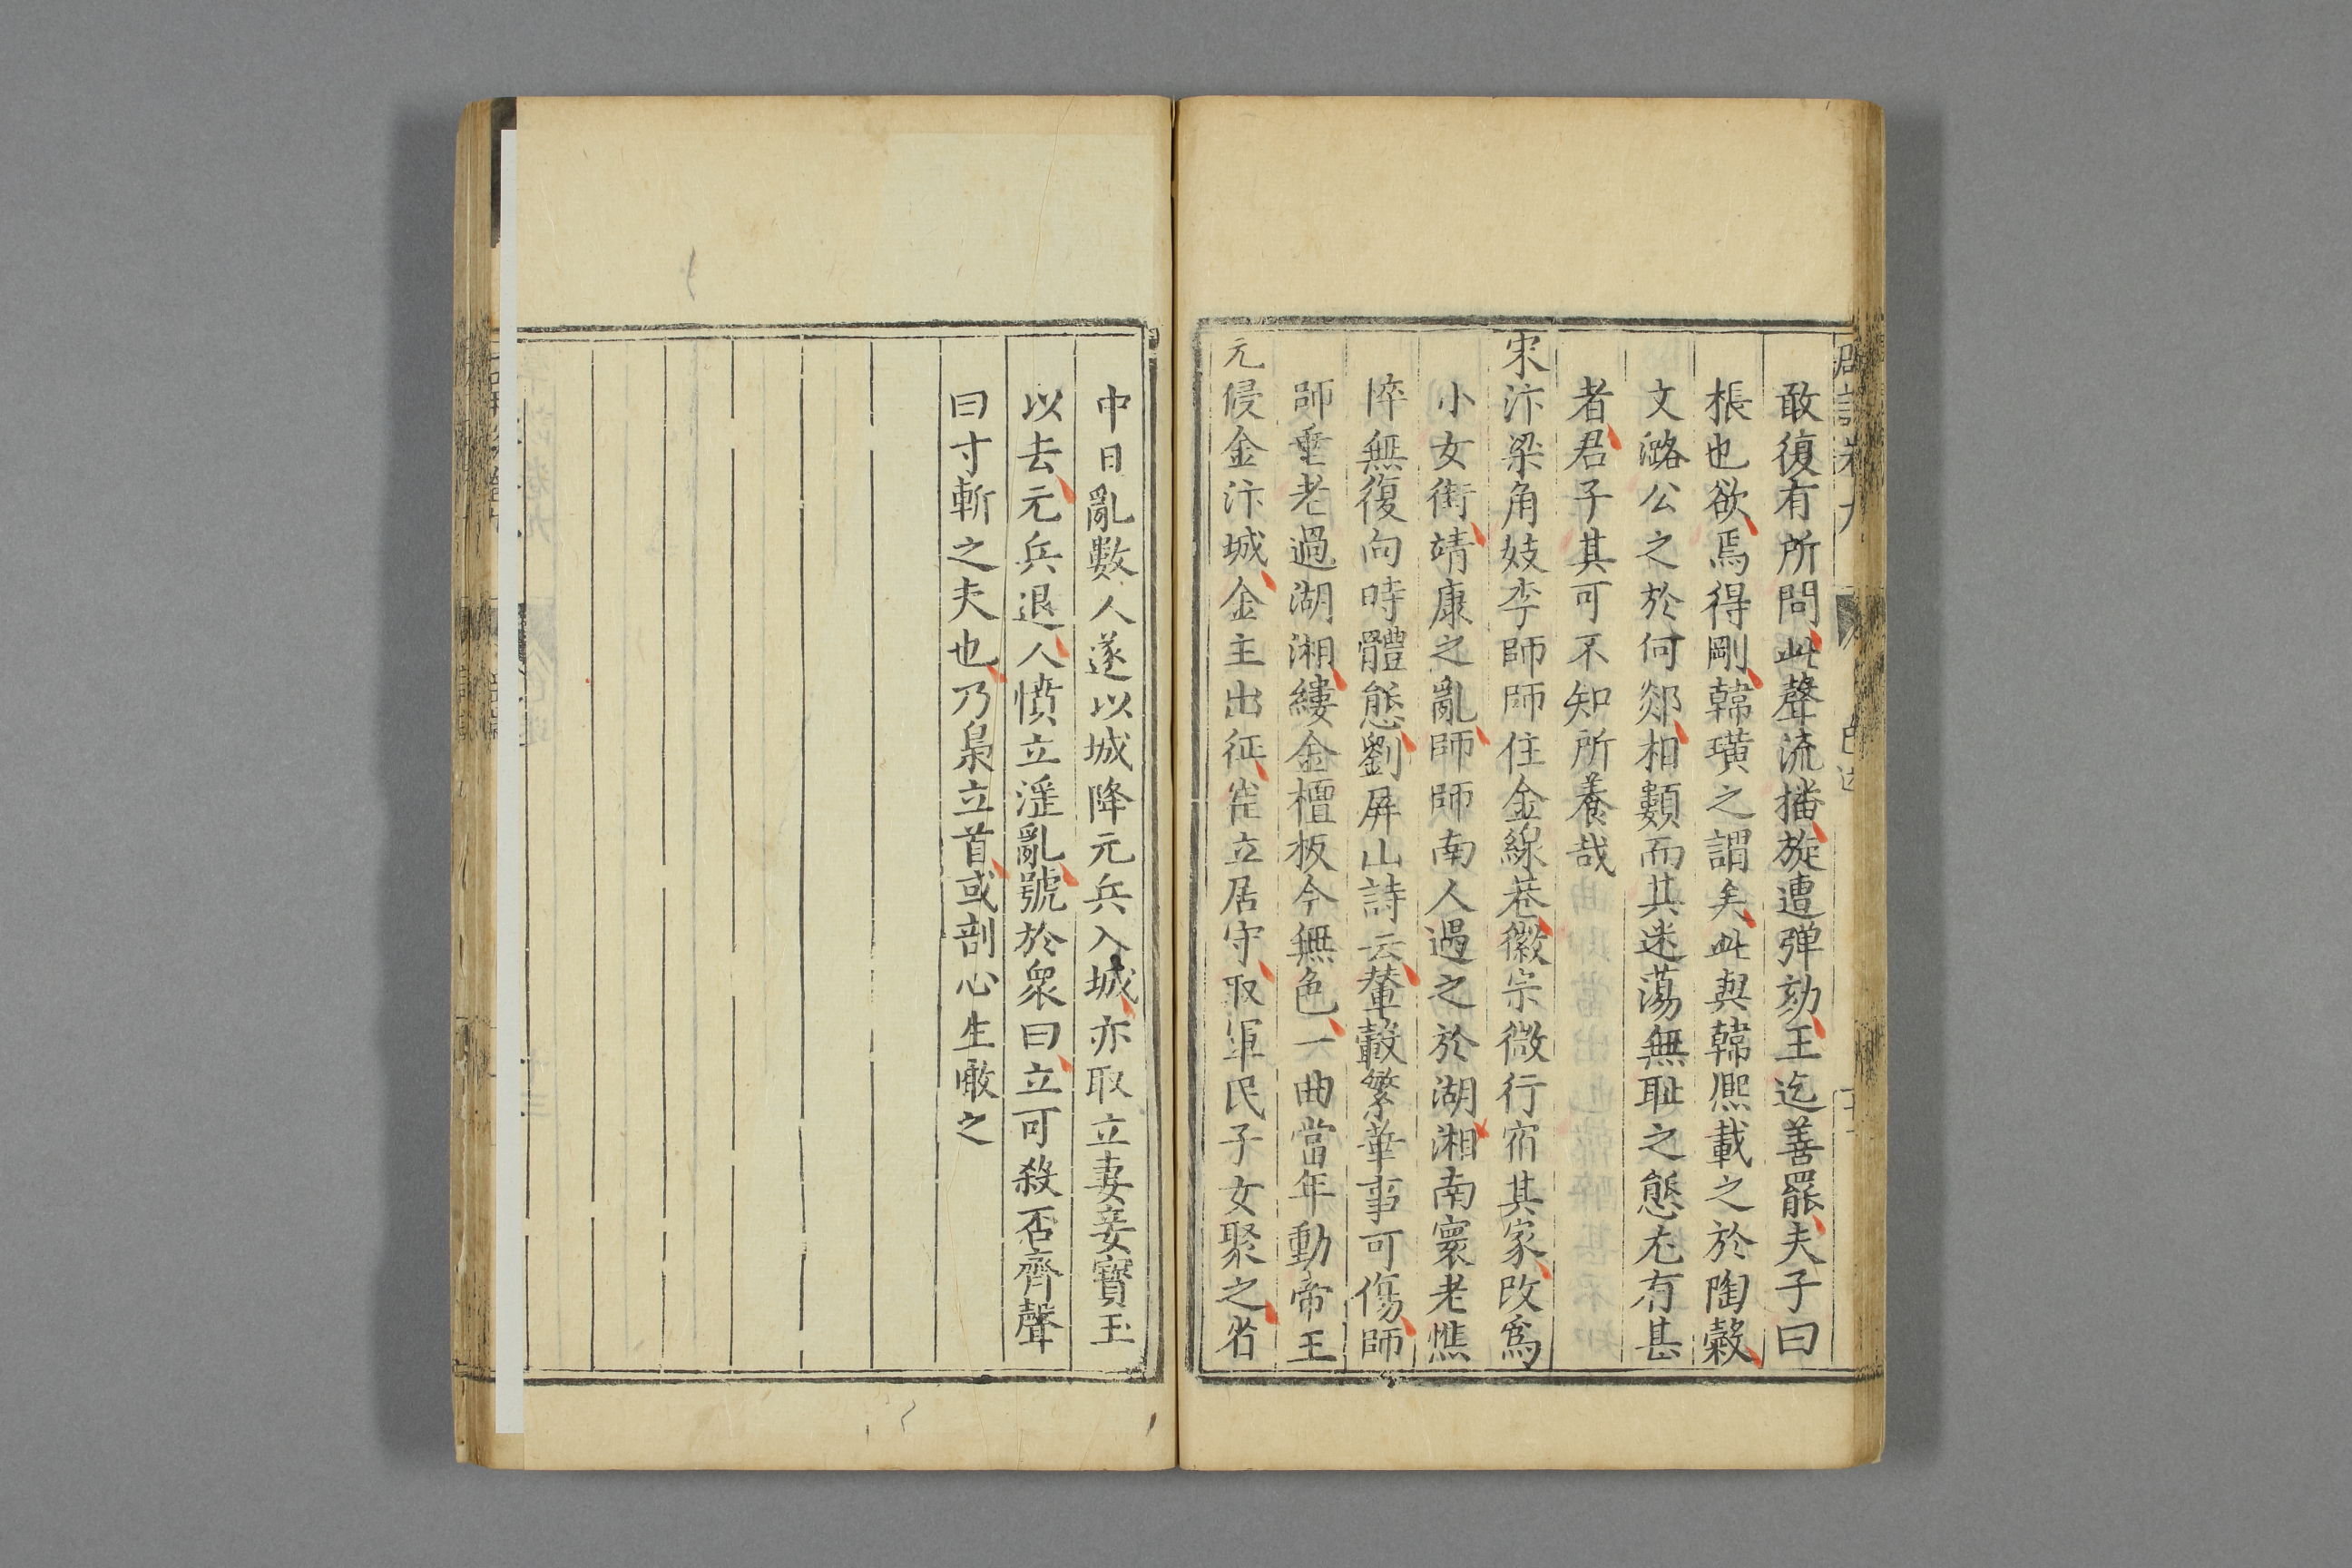 敢復有所問此聲流播旋遭弹劾王迄善罷夫子曰
棖也欲焉得剛韓璜之謂矣此與韓熈載之於陶穀
文潞公之於何郯相類而其迷蕩無耻之態尤有甚
者君子其可不知所養哉
宋汴梁角妓李師師住金線巷徽宗微行宿其家改爲
小女衒靖康之亂師師南人遇之於湖湘南寰老憔
悴無復向時體態劉屏山詩云輦轂繁華事可傷師
師垂老過湖湘縷金檀板今無色一曲當年動帝王
元侵金汴城金主出征崔立居守取軍民子女聚之省
中日亂數人遂以城降元兵入城亦取立妻妾寶玉
以去元兵退人憤立淫亂號於衆曰立可殺否齊聲
曰寸斬之夫也乃梟立首或剖心生噉之